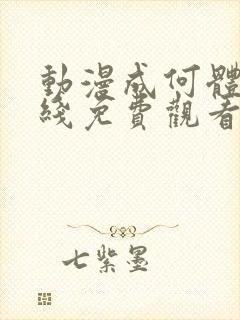 動漫成何體
綫免費觀看
七紫墨